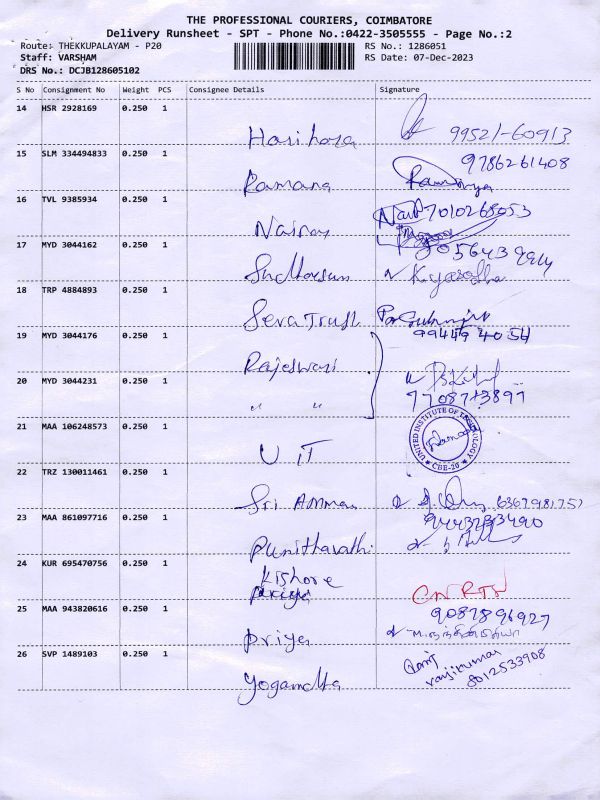 THE PROFESSIONAL COURIERS, COIMBATORE
Delivery Runsheet - SPT - Phone No.:0422-3505555 - Page No.:2
Route: THEKKUPALAYAM - P20 RS No.: 1286051
Staff: VARSHAM RS Date: 07-Dec-2023
DRS No.: DCJB128605102
S No Consignment No Weight PCS Consignee Details Signature
14 HSR 2928169 0.250 1
99521-60913
15 SLM 334494833 0.250 1
9786261408
Ramana
16 TVL 9385934 0.250 1
7010268053
17 MYD 3044162 0.250 1
K. yasodha
18 TRP 4884893 0.250 1
Seva Trust
19 MYD 3044176 0.250 1
99449 4054
Rajeswari
20 MYD 3044231 0.250 1
7708713897
" "
21 MAA 106248573 0.250 1
UNITED INSTITUTE OF TECHNOLOGY
CBE-20
UIT
22 TRZ 130011461 0.250 1
Sri Amman
23 MAA 861097716 0.250 1
Punitharathi
24 KUR 695470756 0.250 1
Kishore
priya
CN RTN
25 MAA 943820616 0.250 1
9087896927
priya
26 SVP 1489103 0.250 1
8012533908